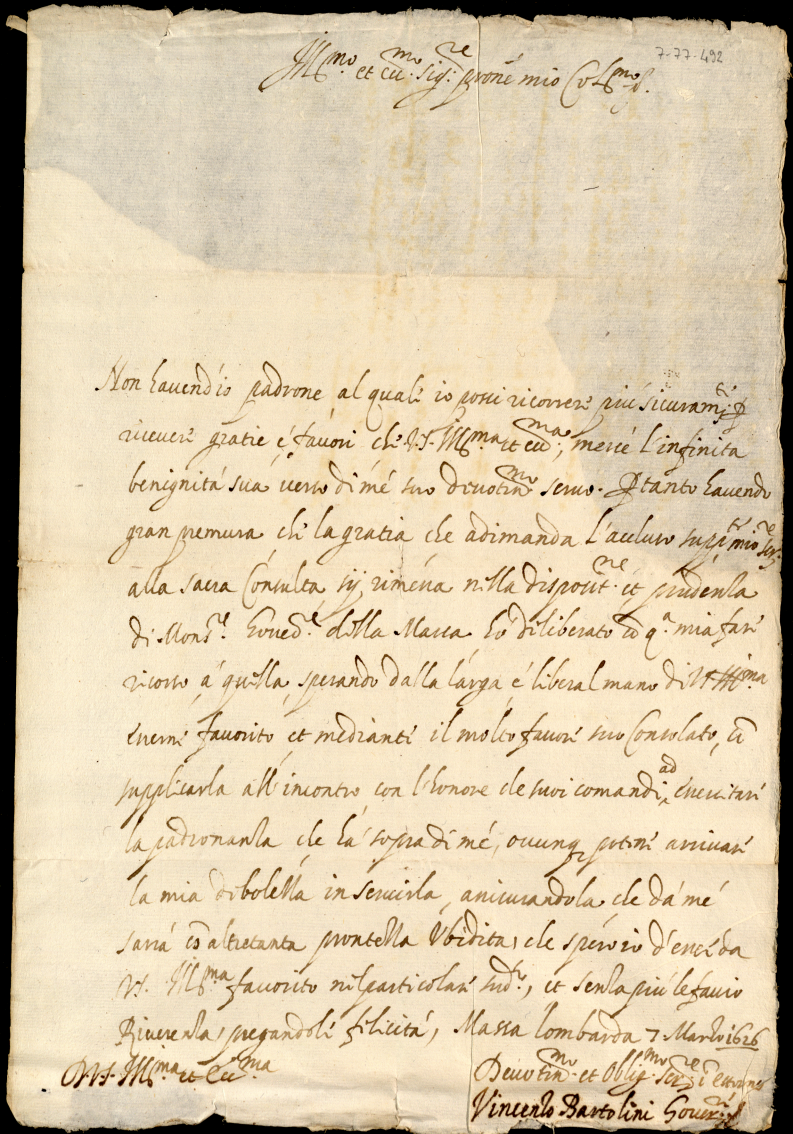 7-77-492
Ill.mo et ecc.mo Sig.re prone mio Col.mo
Non havend'io padrone al quale io possi ricorrere più sicuram.te p
ricevere gratie é favori che V.S. Ill.ma et ecc.ma, mercé l'infinita
benignitá sua verso di mé suo divotiss.mo servo. Ptanto havendo
gran premura che la gratia che adimanda l'accluso supp.te mio ser.re
alla sacra Consulta sij rimessa nella disposit.ne et prudenza
di Mons.r Gover.re della Marca hó diliberato cō q.a mia fare
ricorso á quella, sperando dalla larga é liberal mano di V.S. Ill.ma
esserne favorito et mediante il molto favore suo Consolato,
supplicarla all'incontro con l'honore de suoi comandi, ad essercitare
la padronanza che há sopra di mé, ovunq potrá arrivare
la mia debolezza in servirla, assicurandola che dá mé
sará cō altretanta prontezza Ubidita, che spero io d'esser da
V.S. Ill.ma favorito nel particolare sud.o, et senza più le faccio
Riverenza, pregandole felicitá, Massa lombarda 7 Marzo 1626
D.V.S. Ill.ma et Ecc.ma
Devotiss.mo et Oblig.mo ser.re
Vincenzo Bartolini Gover.re